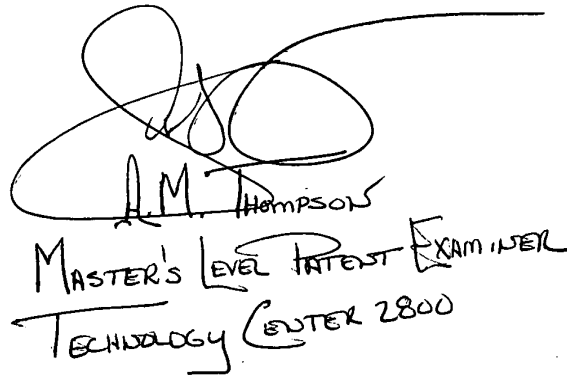 A.M. Thompson
Master's Level Patent Examiner
Technology Center 2800